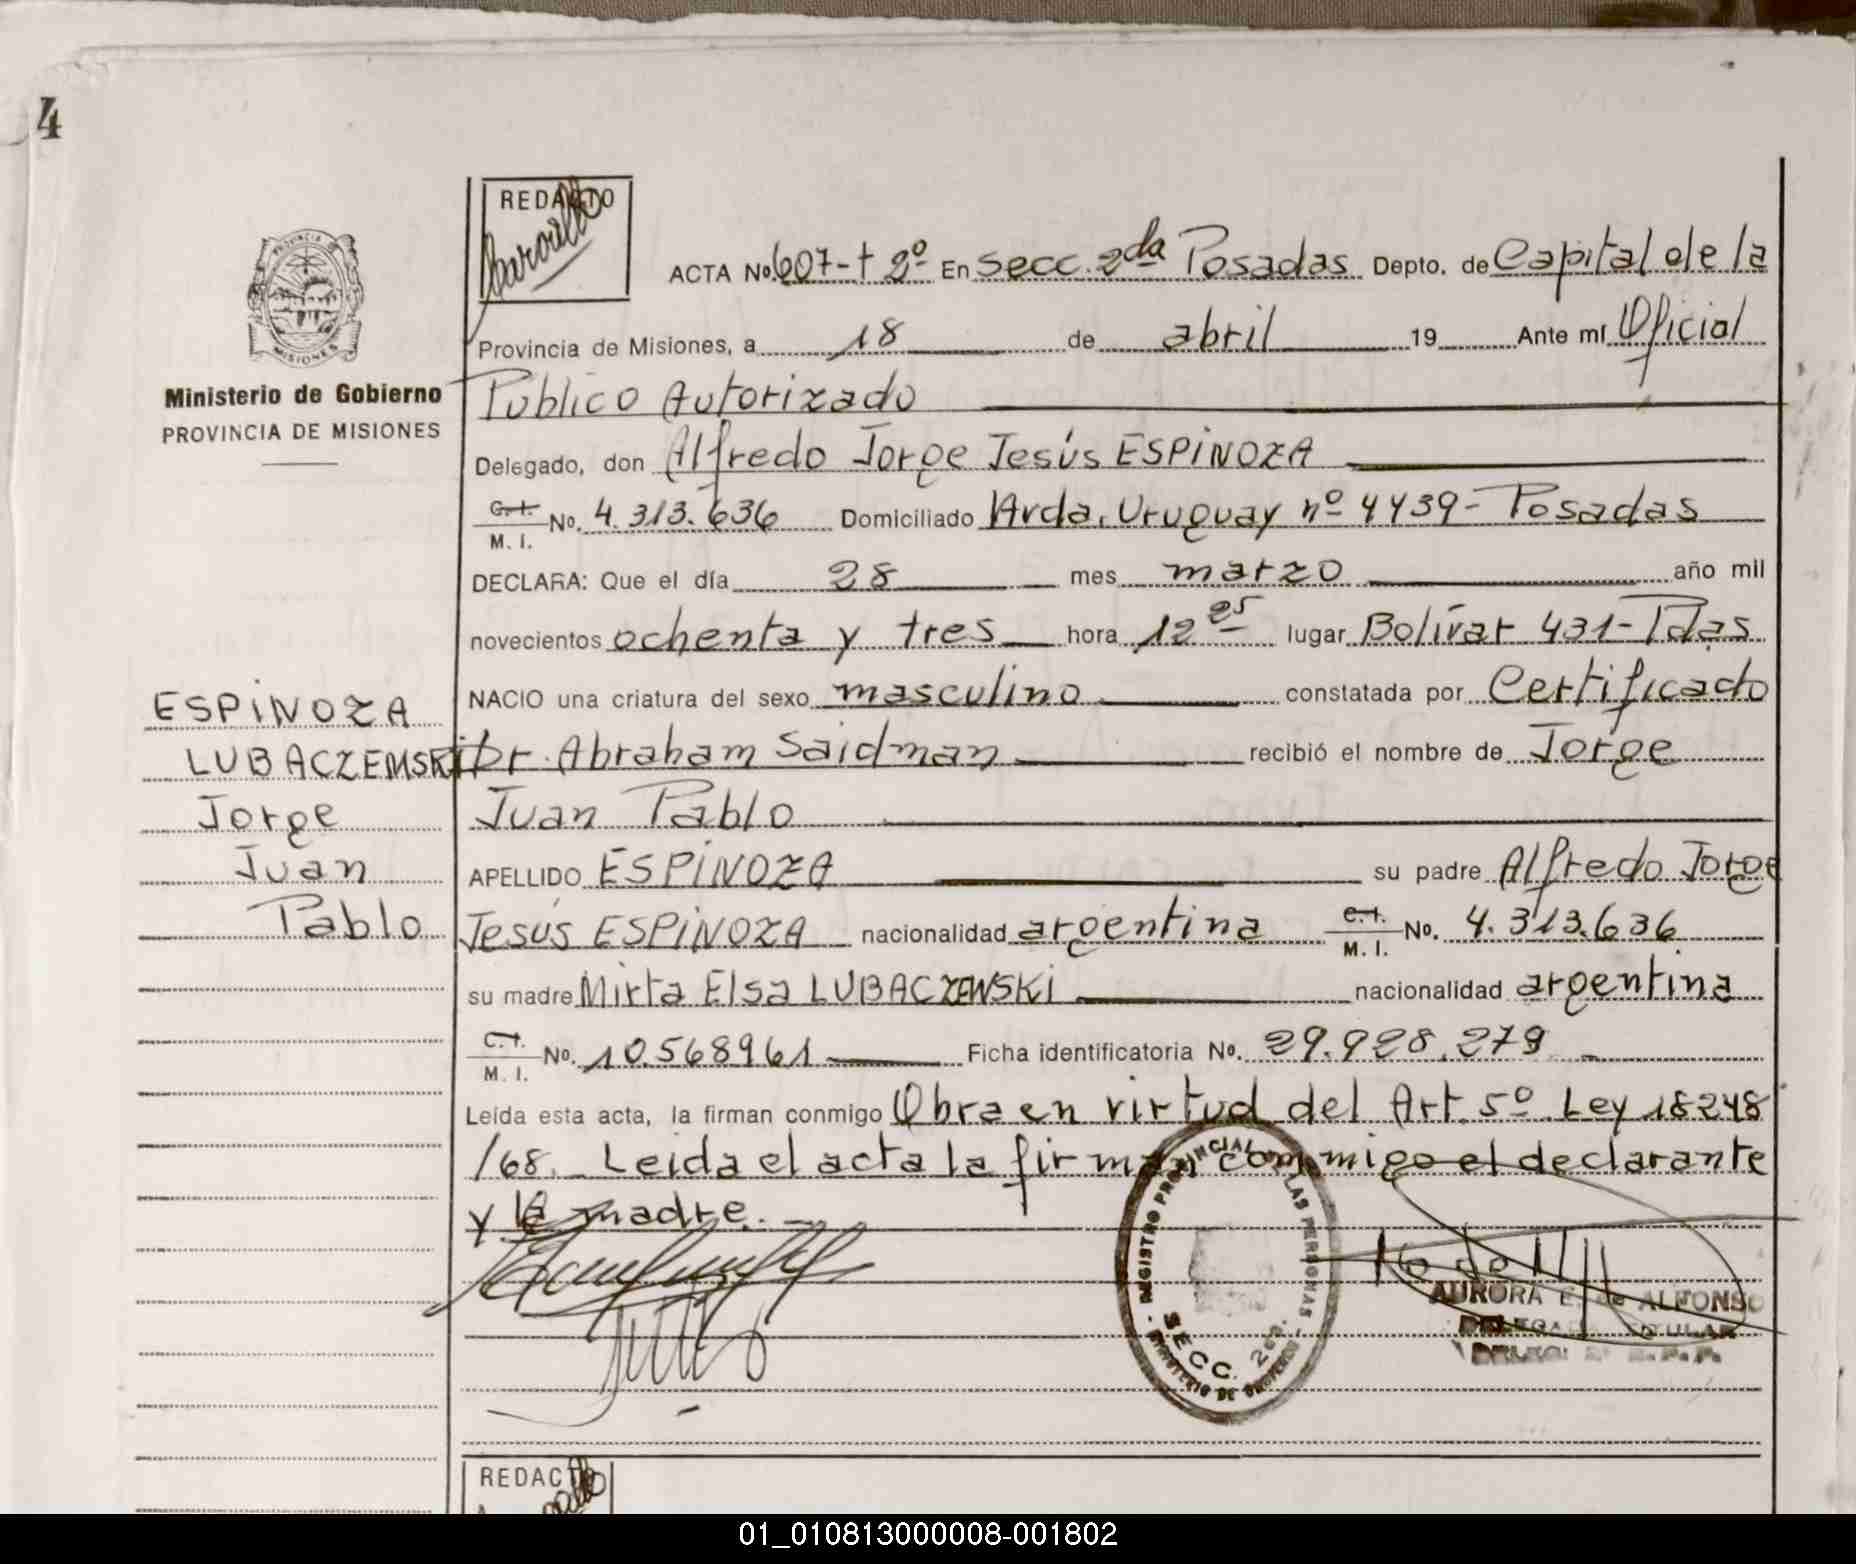 4
REDACTO
ACTA No. 607-t 2º En Secc. 2da Posadas Depto. de Capital de la
Provincia de Misiones, a 18 de abril 19 Ante mí Oficial
Ministerio de Gobierno
PROVINCIA DE MISIONES
Público Autorizado
Delegado, don Alfredo Jorge Jesús ESPINOZA
C.I.
M. I. No. 4.313.636 Domiciliado Avda. Uruguay nº 4439- Posadas
DECLARA: Que el día 28 mes marzo año mil
novecientos ochenta y tres hora 12 25 lugar Bolívar 431- Pdas
NACIO una criatura del sexo masculino constatada por Certificado
Dr. Abraham Saidman recibió el nombre de Jorge
Juan Pablo
ESPINOZA
LUBACZEMSKI
Jorge
Juan
Pablo
APELLIDO ESPINOZA su padre Alfredo Jorge
Jesús ESPINOZA nacionalidad argentina C.I. M. I. No. 4.313.636
su madre Mirta Elsa LUBACZEWSKI nacionalidad argentina
C.I.
M. I. No. 10.568961 Ficha identificatoria No. 29.928.279
Leída esta acta, la firman conmigo Obra en virtud del Art. 5º Ley 18248
/68. Leida el acta la firman conmigo el declarante
y la madre.
REGISTRO PROVINCIAL DE LAS PERSONAS
SECC. 2da.
MINISTERIO DE GOBIERNO
AURORA E. de ALFONSO
DELEGADA TITULAR
REDACTO
01_010813000008-001802